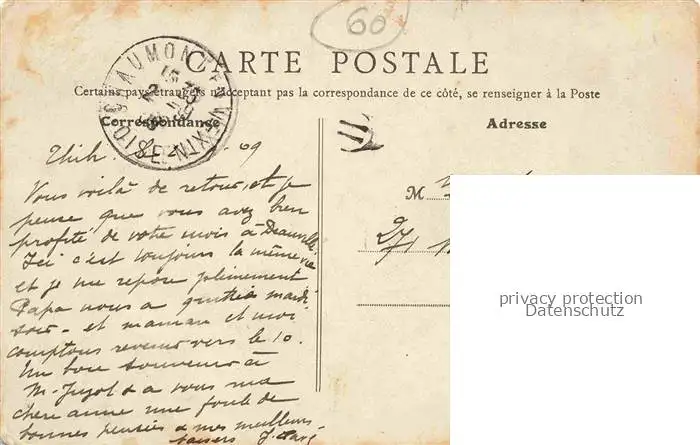 60
CARTE POSTALE
Certains pays étrangers n'acceptant pas la correspondance de ce côté, se renseigner à la Poste
CHAUMONT-EN-VEXIN
OISE
Correspondance
Adresse
09
Vous voilà de retour, et je
pense que vous avez bien
profité de votre mois à Deauville
Ici c'est toujours la même vie
et je me repose pleinement
Papa nous a quittés mardi
soir - et maman et moi
comptons revenir vers le 10.
Un bon souvenir à
M. et à vous ma
chère anne une foule de
bonnes pensées & mes meilleurs
baisers
M
271
privacy protection
Datenschutz